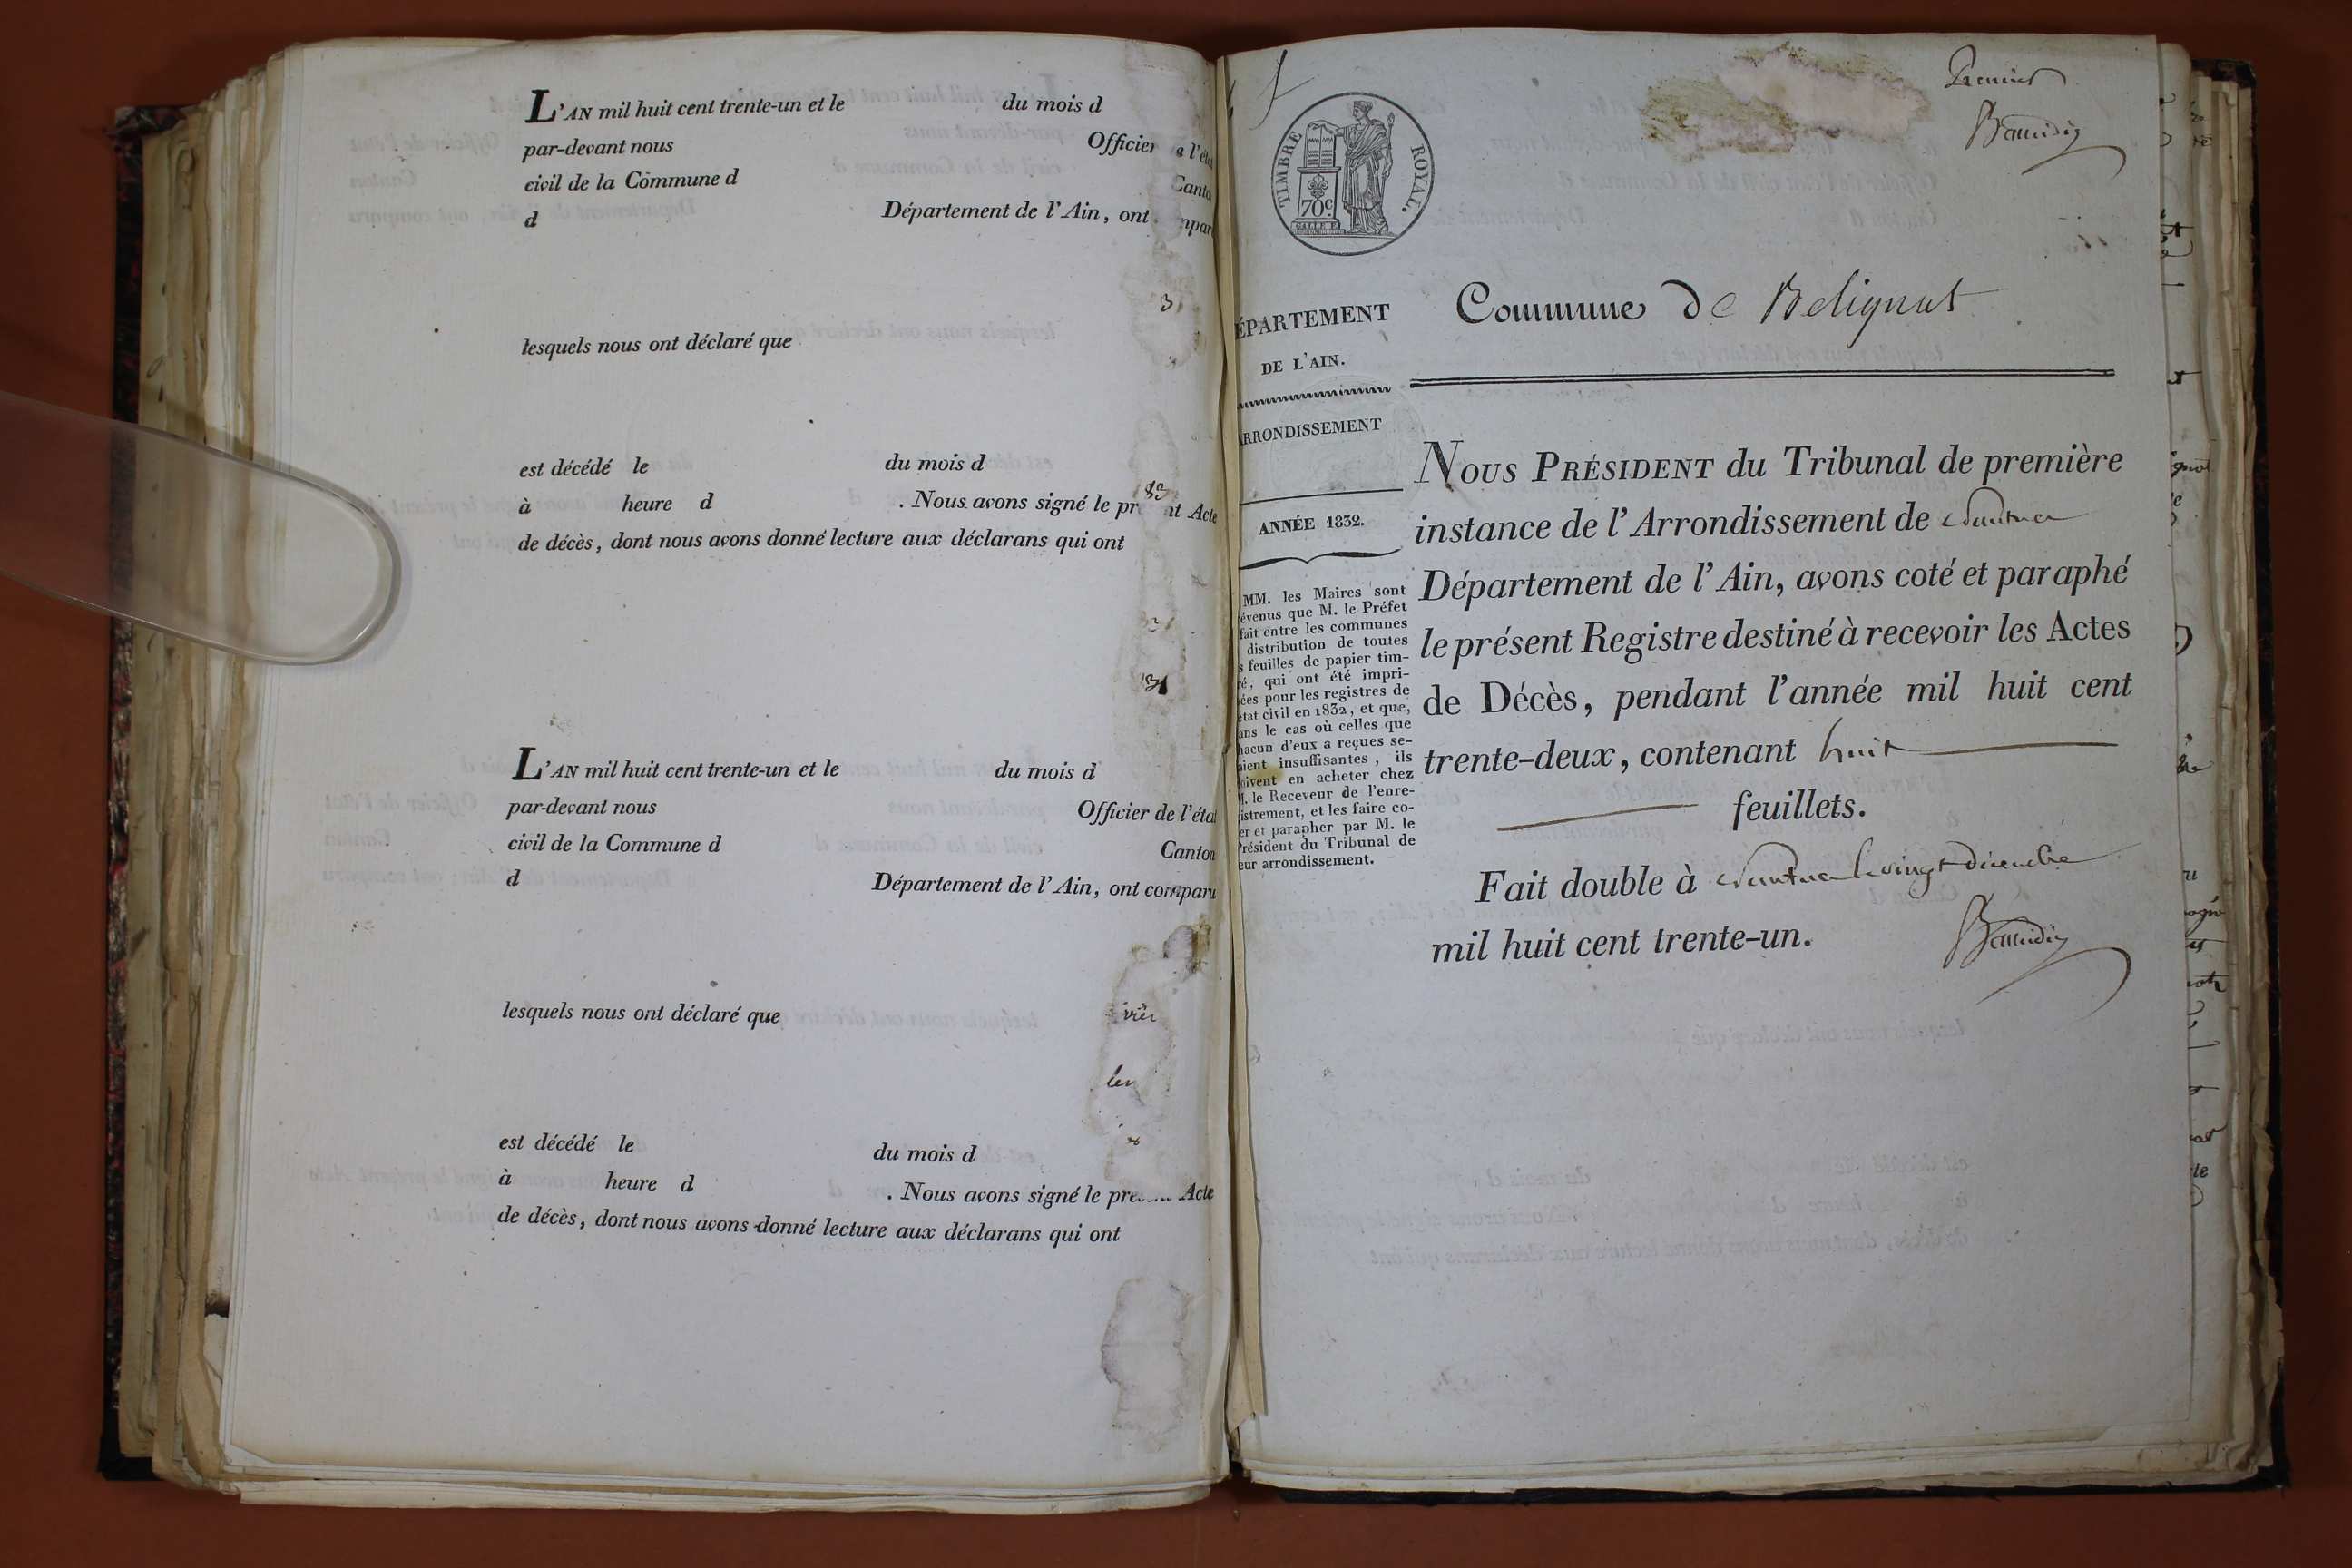 L'AN mil huit cent trente-un et le du mois d
par-devant nous Officier l'éta
civil de la Commune d Canto
d Département de l'Ain, ont
lesquels nous ont déclaré que
est décédé le du mois d
à heure d . Nous avons signé le pr nt Acte
de décès, dont nous avons donné lecture aux déclarans qui ont
L'AN mil huit cent trente-un et le du mois d
par-devant nous Officier de l'éta
civil de la Commune d Canton
d Département de l'Ain, ont comparu
lesquels nous ont déclaré que
est décédé le du mois d
à heure d . Nous avons signé le pre Acte
de décès, dont nous avons donné lecture aux déclarans qui ont
Premier
TIMBRE ROYAL.
70c
ÉPARTEMENT
DE L'AIN.
RRONDISSEMENT
ANNÉE 1832.
MM. les Maires sont
évenus que M. le Préfet
fait entre les communes
distribution de toutes
s feuilles de papier tim-
ré, qui ont été impri-
ées pour les registres de
état civil en 1832, et que,
ans le cas où celles que
hacun d'eux a reçues se-
aient insuffisantes, ils
oivent en acheter chez
M. le Receveur de l'enre-
istrement, et les faire co-
er et parapher par M. le
Président du Tribunal de
eur arrondissement.
Commune de Belignat
NOUS PRÉSIDENT du Tribunal de première
instance de l'Arrondissement de Nantua
Département de l'Ain, avons coté et paraphé
le présent Registre destiné à recevoir les Actes
de Décès, pendant l'année mil huit cent
trente-deux, contenant huit
feuillets.
Fait double à Nantua le vingt décembre
mil huit cent trente-un.